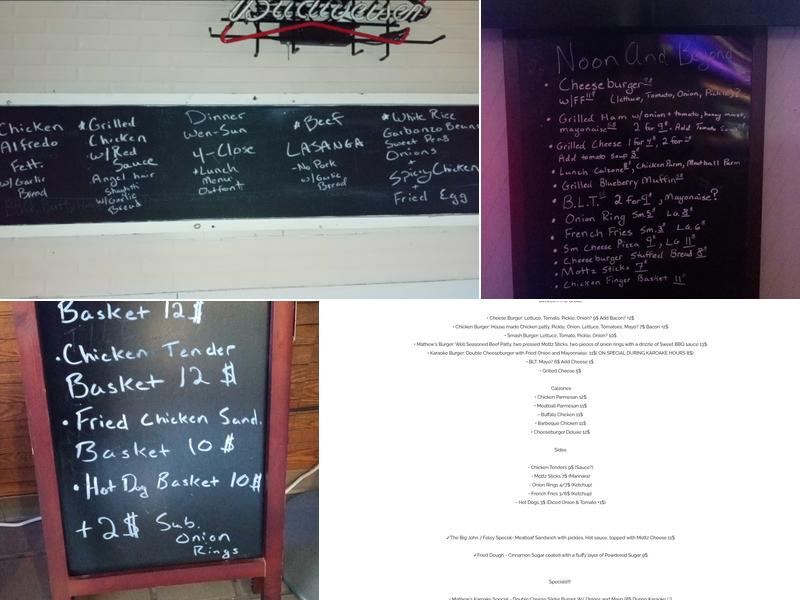 Budweiser
Chicken
Alfredo
Fett.
w/Garlic
Bread
*Grilled
Chicken
w/Red
Sauce
Angel hair
w/Garlic
Bread
Dinner
Wen-Sun
4-Close
+Lunch
Menu
Outfront
*Beef
LASANGA
-No Pork
w/Garlic
Bread
*White Rice
Garbonzo Beans
Sweet Peas
Onions
+
Spicy Chicken
+
Fried Egg
Noon And Beyond
• Cheeseburger
w/FF (lettuce, Tomato, Onion, Pickle)?
• Grilled Ham w/onion + tomato, honey must,
mayonaise 2 for 9 Add Tomato
• Grilled Cheese 1 for 4, 2 for
Add tomato soup 3
• Lunch Calzone 8, Chicken Parm, Meatball Parm
• Grilled Blueberry Muffin
• B.L.T. 2 for 9, Mayonaise?
• Onion Ring Sm. 5 La. 8
• French Fries Sm. 3 LG. 6
• Sm Cheese Pizza 9, LG 11
• Cheeseburger Stuffed Bread 8
• Mottz Sticks 7
• Chicken Finger Basket 11
Basket 12$
• Chicken Tender
Basket 12 $
• Fried Chicken Sand.
Basket 10 $
• Hot Dog Basket 10$
+2$ Sub.
Onion
Rings
• Cheese Burger: Lettuce, Tomato, Pickle, Onion? 9$ Add Bacon? +2$
• Chicken Burger: House made Chicken patty, Pickle, Onion, Lettuce, Tomatoes, Mayo? 7$ Bacon +2$
• Smash Burger: Lettuce, Tomato, Pickle, Onion? 10$
• Mathew's Burger: Well Seasoned Beef Patty, two pressed Mottz Sticks, two pieces of onion rings with a drizzle of Sweet BBQ sauce 13$
• Karaoke Burger: Double Cheeseburger with Fried Onion and Mayonnaise. 11$( ON SPECIAL DURING KAROAKE HOURS 8$)
• BLT: Mayo? 6$ Add Cheese 1$
• Grilled Cheese 5$
Calzones
• Chicken Parmesan 12$
• Meatball Parmesan 11$
• Buffalo Chicken 11$
• Barbeque Chicken 11$
• Cheeseburger Deluxe 12$
Sides
• Chicken Tenders 9$ (Sauce?)
• Mottz Sticks 7$ (Marinara)
• Onion Rings 4/7$ (Ketchup)
• French Fries 3/6$ (Ketchup)
• Hot Dogs 3$ (Diced Onion & Tomato +1$)
✓The Big John J Foley Special- Meatloaf Sandwich with pickles, Hot sauce, topped with Mottz Cheese 11$
✓Fried Dough - Cinnamon Sugar coated with a fluffy layer of Powdered Sugar 9$
Specials!!!